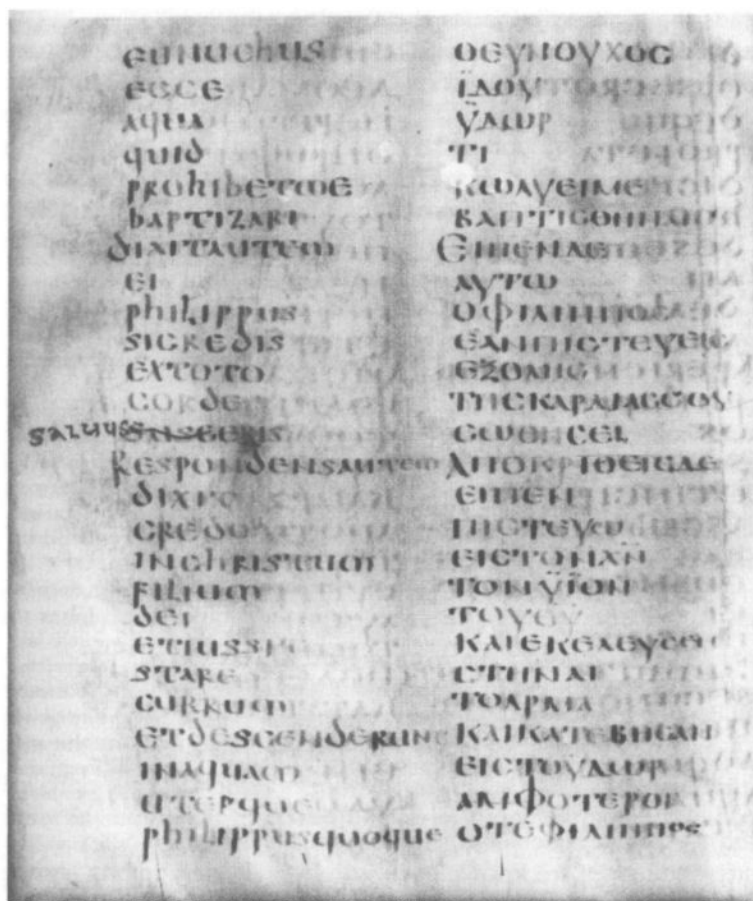 EUNUCHUS
ECCE
AQUA
QUID
PROHIBETME
BAPTIZARI
DIXITAUTEM
EI
PHILIPPUS
SICREDIS
EXTOTO
CORDE
SALUUS
RESPONDENSAUTEM
DIXIT
CREDO
INCHRISTUM
FILIUM
DEI
ETIUSSIT
STARE
CURRUM
ETDESCENDERUNT
INAQUAM
UTERQUE
PHILIPPUSQUOQUE
ΟΕΥΝΟΥΧΟϹ
ΪΔΟΥ
ΫΔΩΡ
ΤΙ
ΚΩΛΥΕΙΜΕ
ΒΑΠΤΙϹΘΗΝΑΙ
ΕΙΠΕΝΔΕ
ΑΥΤΩ
ΟΦΙΛΙΠΠΟϹ
ΕΑΝΠΙϹΤΕΥΕΙϹ
ΕΞΟΛΗϹ
ΤΗϹΚΑΡΔΙΑϹϹΟΥ
ϹΩΘΗϹΕΙ
ΑΠΟΚΡΙΘΕΙϹΔΕ
ΕΙΠΕΝ
ΠΙϹΤΕΥΩ
ΕΙϹΤΟΝΧ̅Ν̅
ΤΟΝΫΪΟΝ
ΤΟΥΘ̅Υ̅
ΚΑΙΕΚΕΛΕΥϹΕΝ
ϹΤΗΝΑΙ
ΤΟΑΡΜΑ
ΚΑΙΚΑΤΕΒΗϹΑΝ
ΕΙϹΤΟΥΔΩΡ
ΑΜΦΟΤΕΡΟΙ
ΟΤΕΦΙΛΙΠΠΟϹ